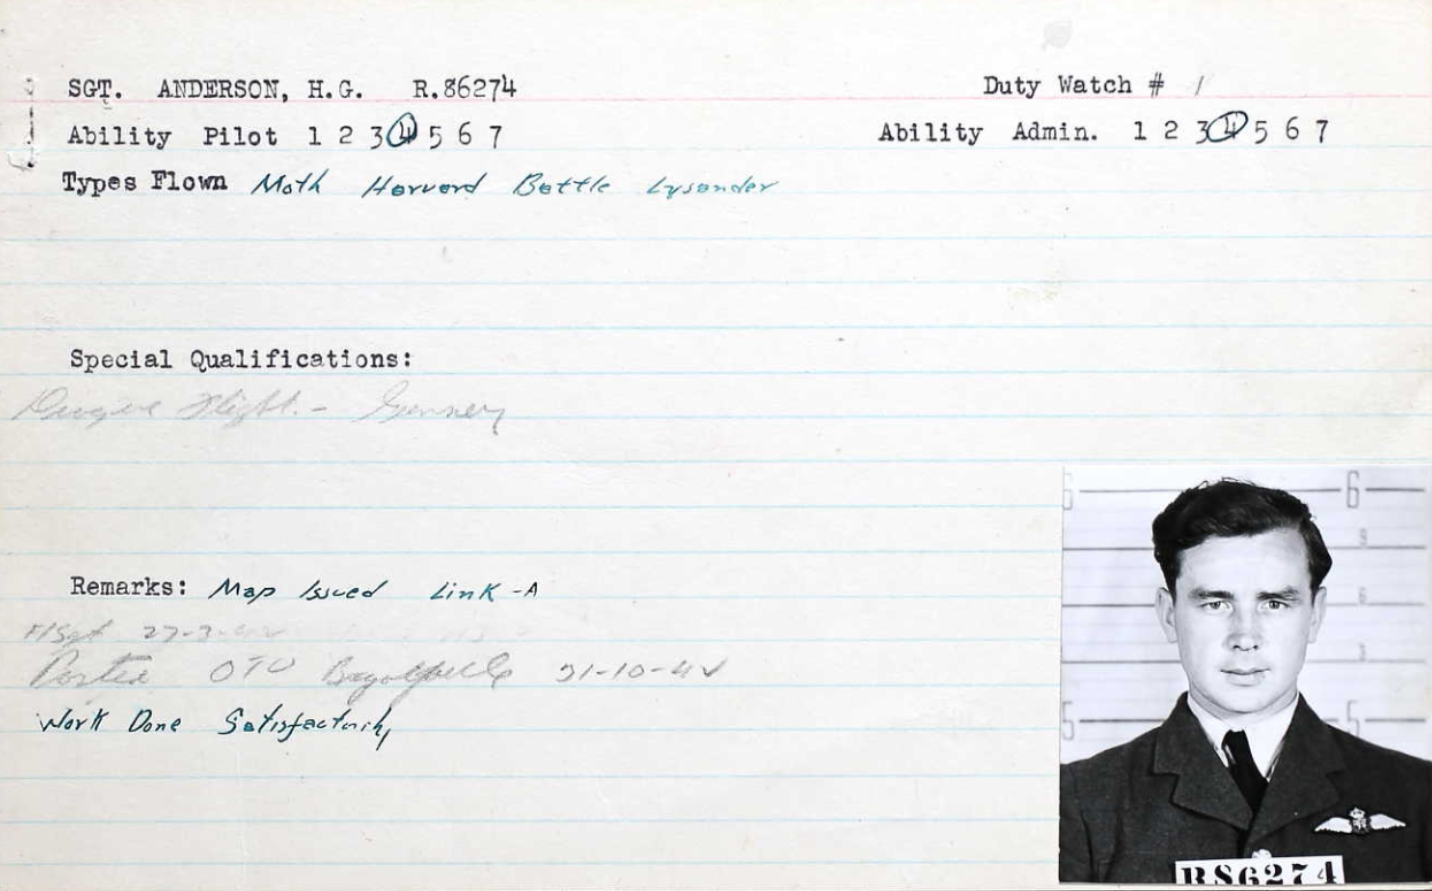 SGT. ANDERSON, H.G. R.86274 Duty Watch # 1
Ability Pilot 1 2 3 4 5 6 7 Ability Admin. 1 2 3 4 5 6 7
Types Flown Moth Harvard Battle Lysander
Special Qualifications:
Flight. - Gunnery
Remarks: Map Issued Link - A
F/Sgt 27-3-42
Posted OTU 31-10-42
Work Done Satisfactorily
6 6
9
6
3
5 5
R86274